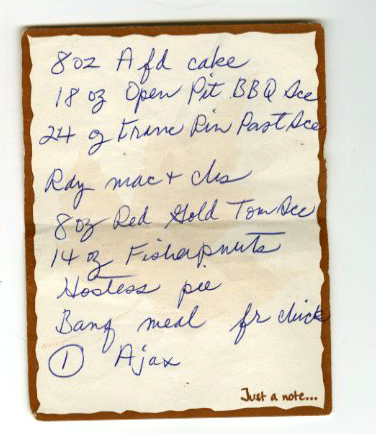 8 oz A fd cake
18 oz Open Pit BBQ Sce
24 oz Franc Rin Past Sce
Rdy mac + chs
8 oz Red Gold Tom Sce
14 oz Fisher pnuts
Hostess pie
Banq meal fr chick
1 Ajax
Just a note...